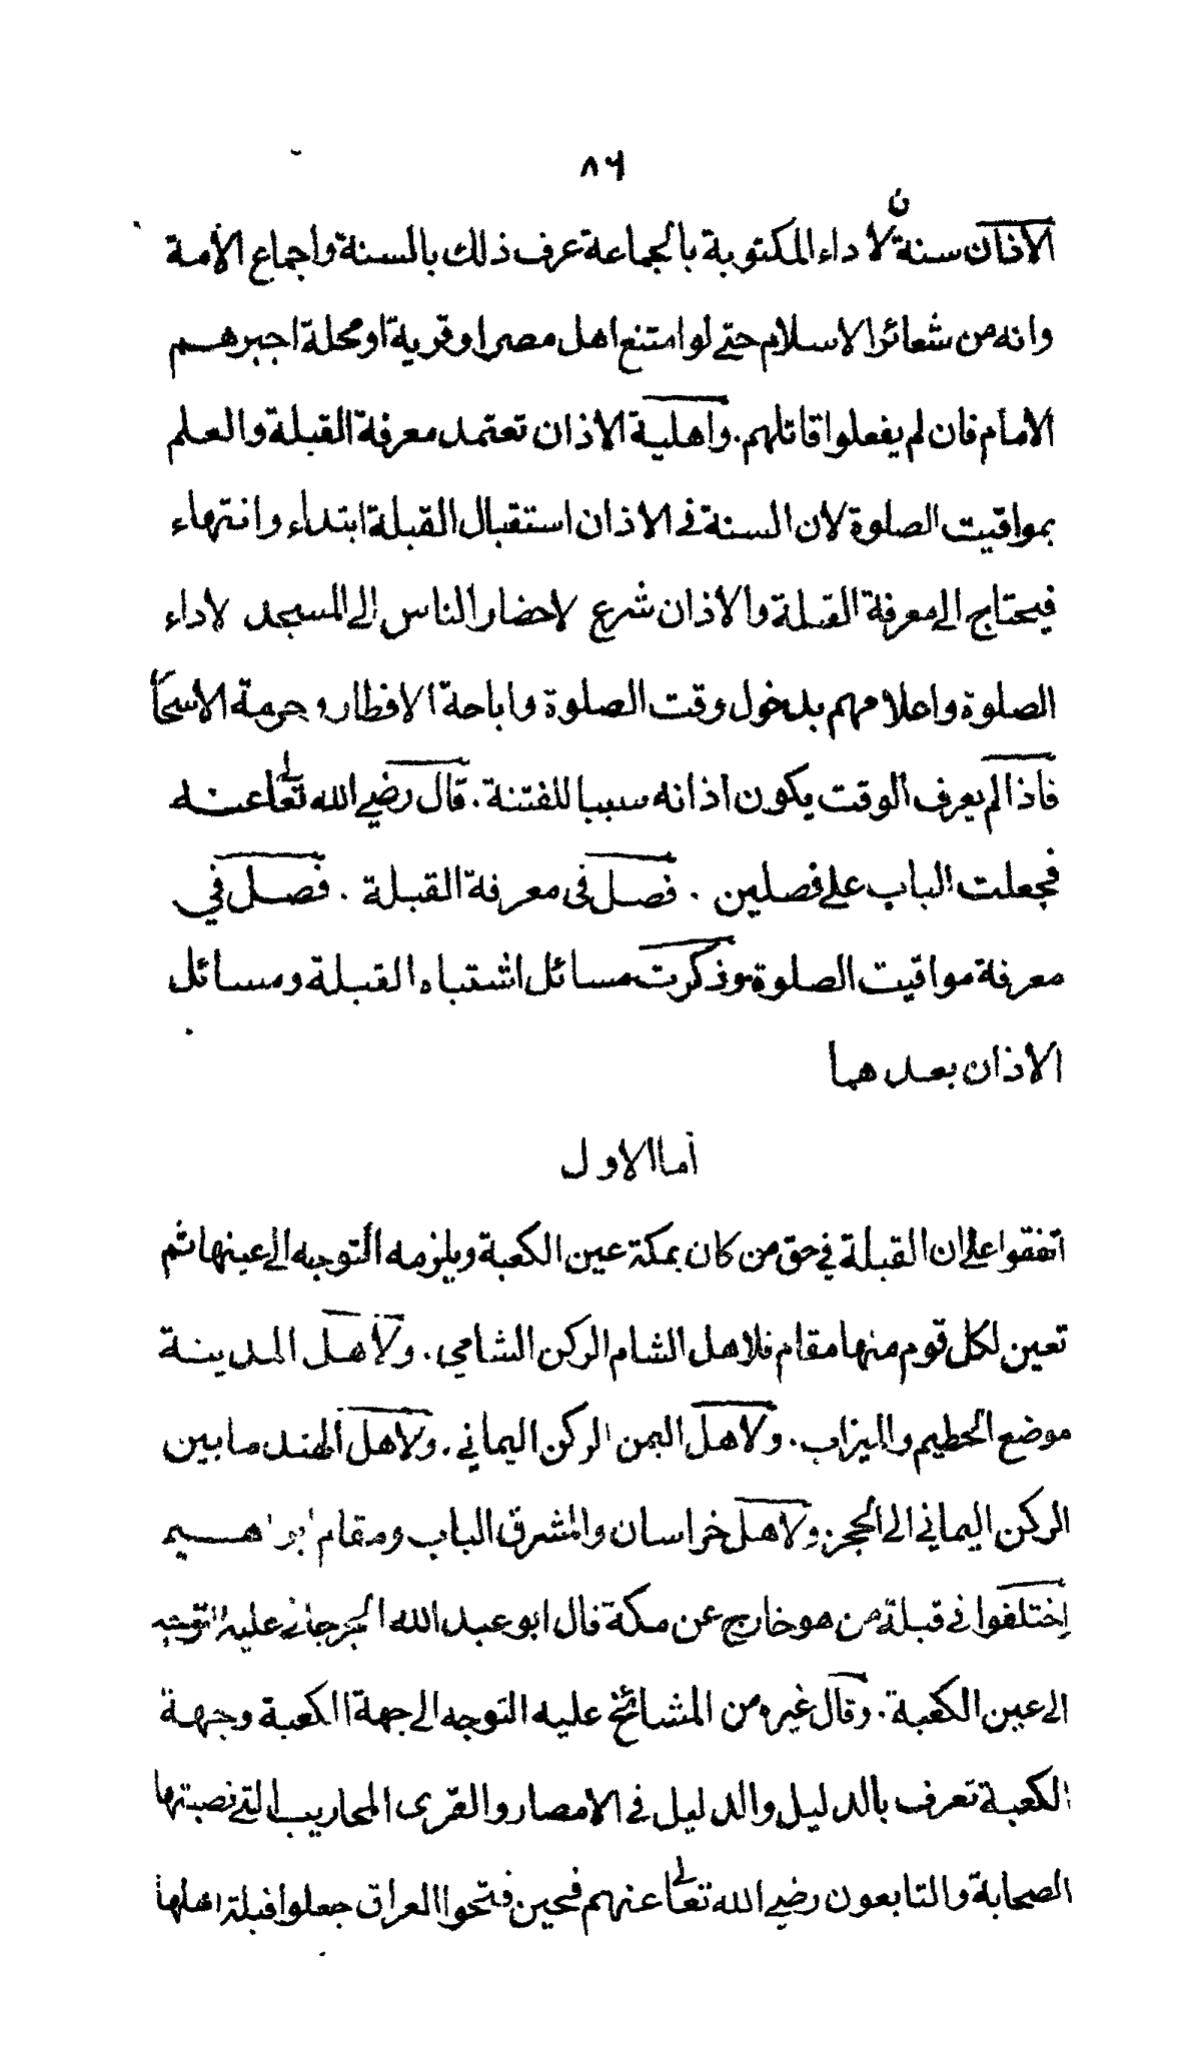 ٨٦
الاذان سنة لاداء المكتوبة بالجماعة عرف ذلك بالسنة واجماع الأمة
وانه من شعائر الاسلام حتى لو امتنع اهل مصر او قرية او محلة اجبرهم
الامام فان لم يفعلوا قاتلهم. واهلية الاذان تعتمد معرفة القبلة والعلم
بمواقيت الصلوة لان السنة في الاذان استقبال القبلة ابتداء وانتهاء
فيحتاج الى معرفة القبلة والاذان شرع لاحضار الناس الى المسجد لاداء
الصلوة واعلامهم بدخول وقت الصلوة واباحة الافطار وحرمة الاسحا
فاذا لم يعرف الوقت يكون اذانه سببا للفتنة. قال رضي الله تعالى عنه
فجعلت الباب على فصلين . فصل في معرفة القبلة . فصل في
معرفة مواقيت الصلوة وذكرت مسائل اشتباه القبلة ومسائل
الاذان بعدهما
اما الاول
اتفقوا على ان القبلة في حق من كان بمكة عين الكعبة ويلزمه التوجه الى عينها ثم
تعين لكل قوم منها مقام فلاهل الشام الركن الشامي. ولاهل المدينة
موضع الحطيم والميزاب. ولاهل اليمن الركن اليماني. ولاهل الهند ما بين
الركن اليماني الى الحجر. ولاهل خراسان والمشرق الباب ومقام ابراهيم
اختلفوا في قبلة من هو خارج عن مكة قال ابو عبد الله الجرجاني عليه التوجه
الى عين الكعبة. وقال غيره من المشائخ عليه التوجه الى جهة الكعبة وجهة
الكعبة تعرف بالدليل والدليل في الامصار والقرى المحاريب التي نصبتها
الصحابة والتابعون رضي الله تعالى عنهم فحين فتحوا العراق جعلوا قبلة اهلها